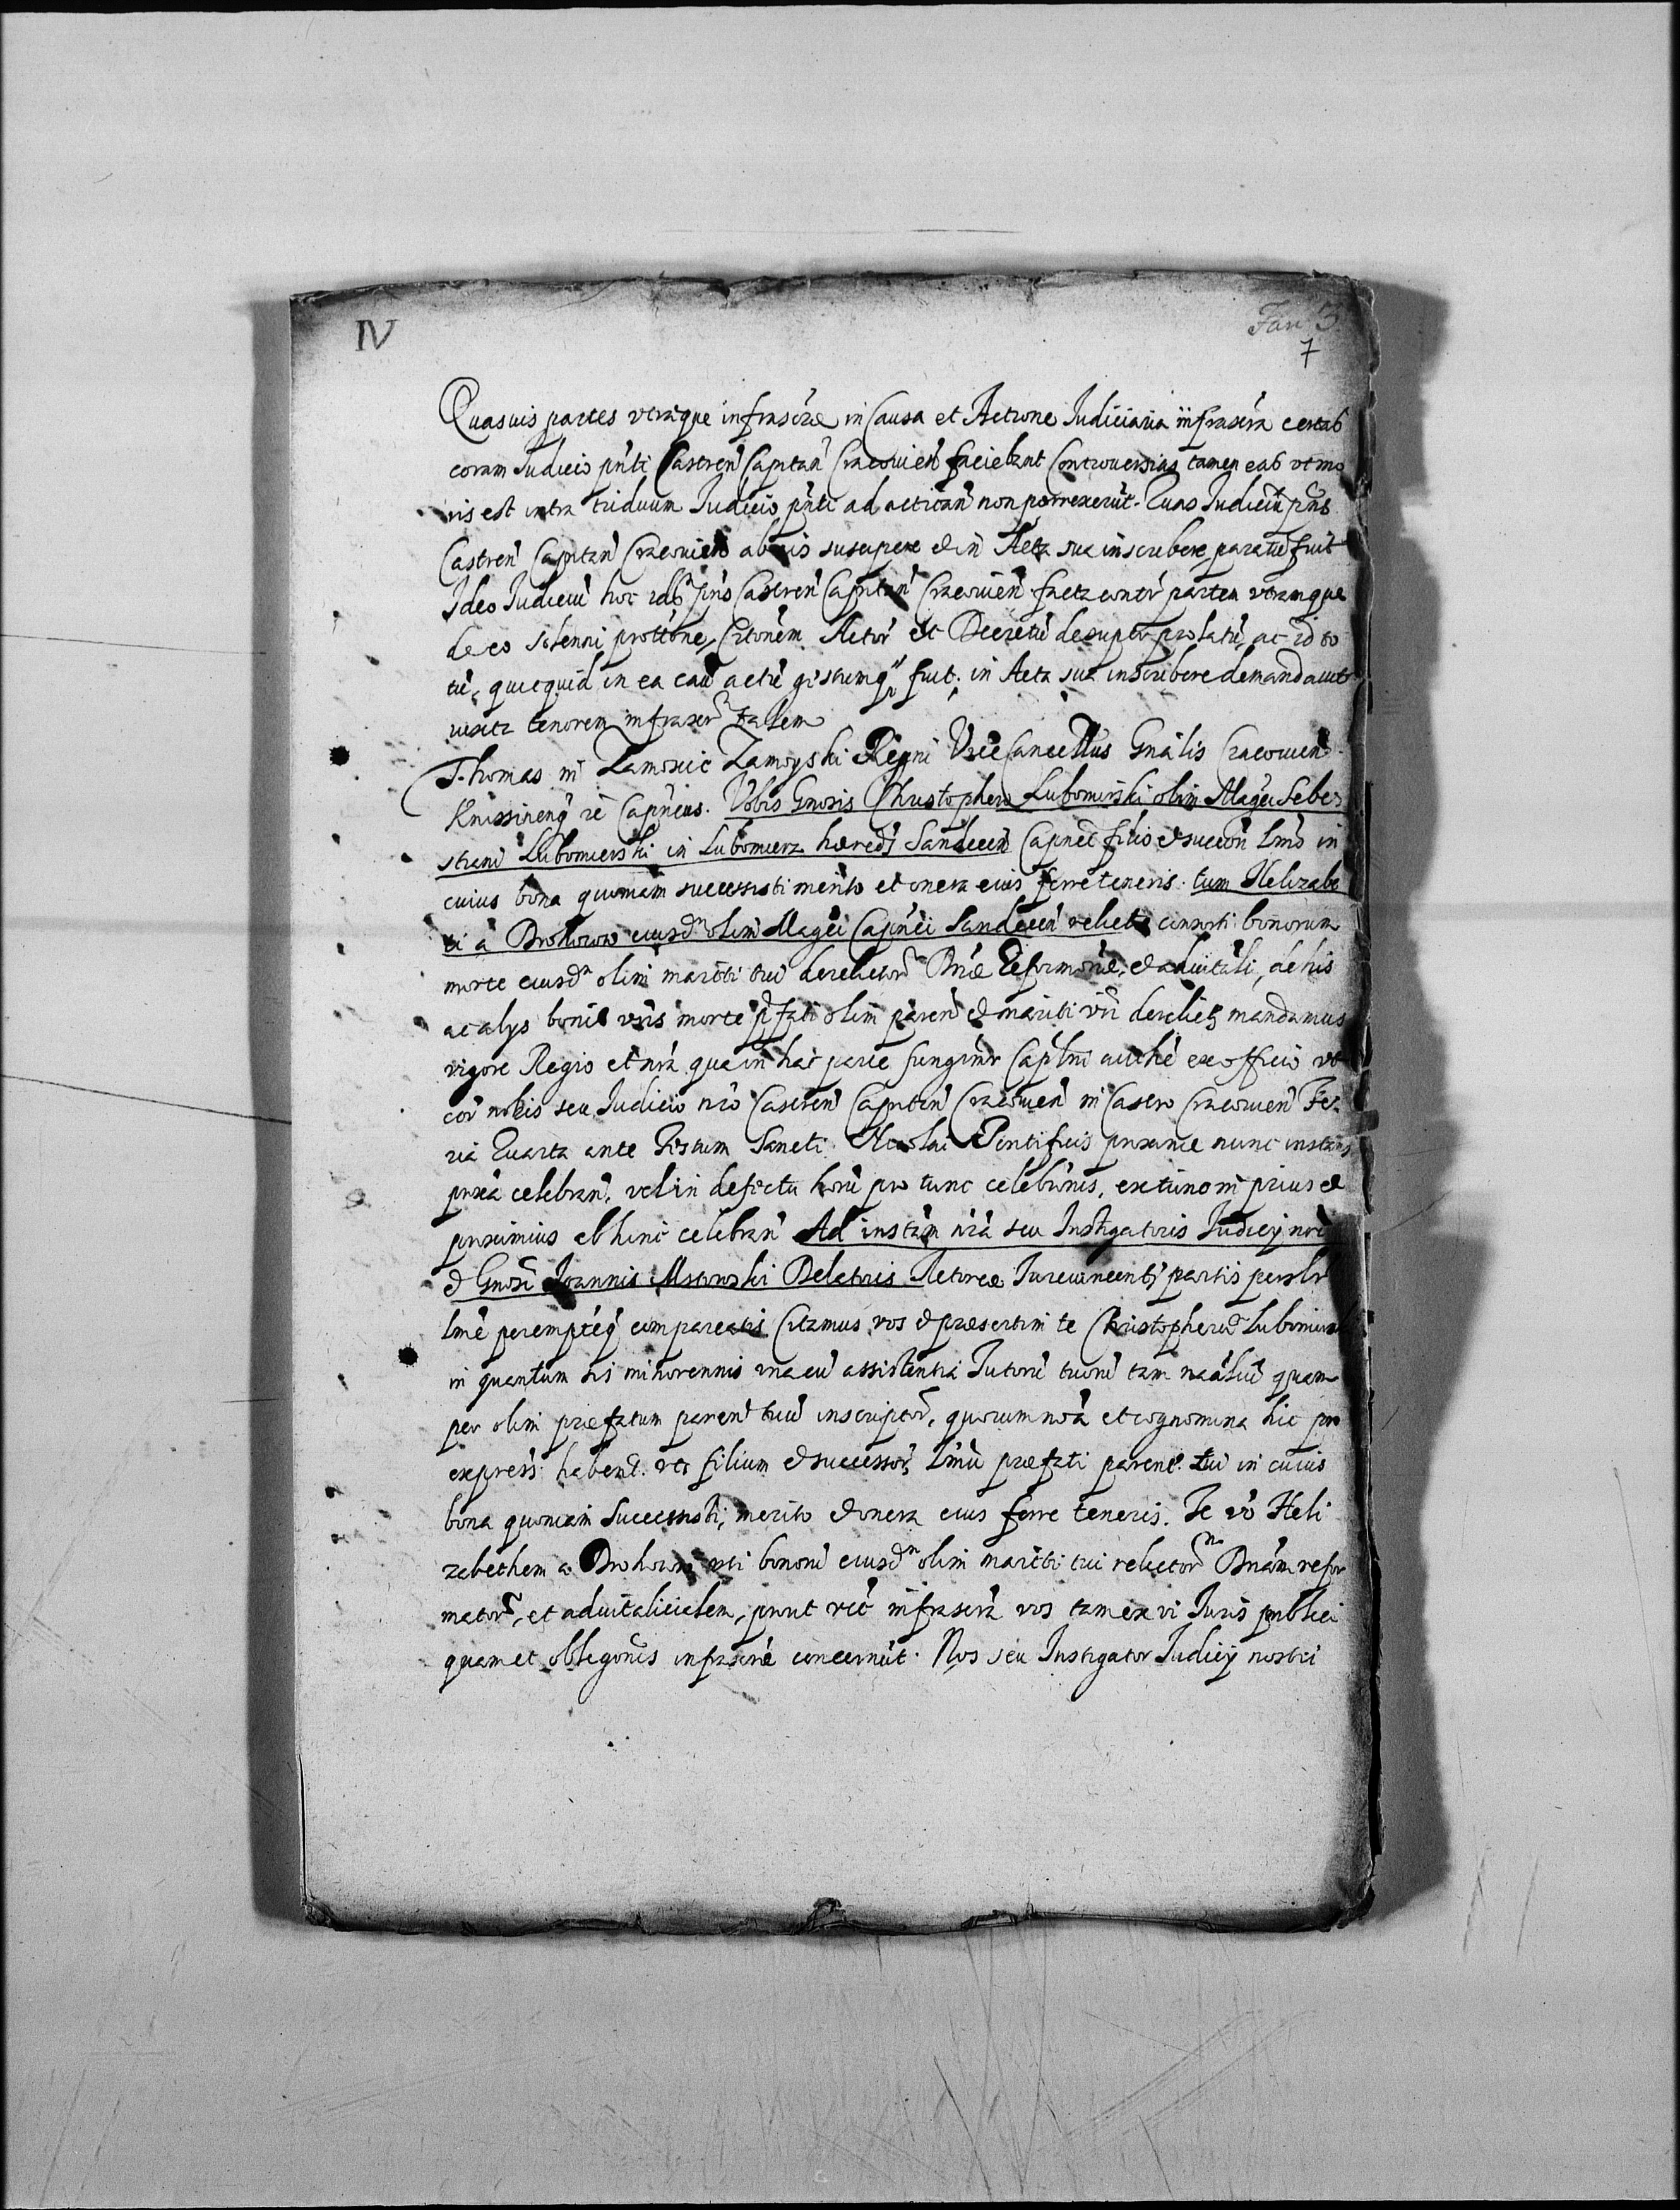 IV
Fan 3
7
Quasuis partes vtraque infrascrae in Causa et Actione Judiciaria infrascra certas
coram Judicio pnti Castren Capitan Cracouien faciebant Controuersias tamen eas vt mo
ris est intra triduum Judicio pnti ad actican non porrexerut. Quas Judiciu pns
Castren Capitan Cracouien ab eis suscipere et in Acta sua inscribere paratu fuit
Ideo Judiciu hoc pns Castren Capitan Cracouien facta contr partem vtramque
de eo solenni protone, Citonem Actor et Decretu desuper prolatu, ac id to
tu, quicquid in ea cau actu gestumq fuit, in Acta sua inscribere demandauit
iuxta tenorem infrascr talem
Thomas in Zamoscie Zamoyski Regni ViceCancellus Gnalis Cracouien
Knissinenq ze Capneus. Vobis Gnosis Christophero Lubomirski olim Magci Sebe
stiani Lubomirski in Lubomierz haeredj Sandecen Capnei filio et succon lmo in
cuius bona quoniam successisti merito et onera eius ferre teneris. tum Helizabe
ti a Drohoiow eiusdn olim Magci Capnei Sandecen relictae consorti bonorum
morte eiusdn olim mariti tui derelictor Dnae Reformoriae, et aduitali, de his
ac alys bonis vris morte pfati olim paren et mariti vri derelictj mandamus
vigore Regio et nra qua in hac parte fungimr Captni authe ex officio vt
cor nobis seu Judicio nro Castren Capitan Cracouien in Castro Cracouien Fe
ria Quarta ante Festum Sancti Nicolai Pontificis proxime nunc instans
proxa celebran, vel in defectu horu pro tunc celebronis, extunc in prius et
proximius abhinc celebran Ad instam nra seu Instigatoris Judicij nri
et Gnosi Joannis Mstowski Delatoris Actorea Jureuincentj partis persolr
lme perempteq compareatis Citamus vos et praesertim te Christopheru Lubomirski
in quantum sis minorennis vna cu assistentia Tutoru tuoru tam naaliu quam
per olim praefatum paren tuu inscriptor, quorum noa et cognomina hic pro
express habent. vts filium et successor lmu praefati parent. tui in cuius
bona quoniam successisti, merito et onera eius ferre teneris. Te vo Heli
zabetham a Drohoiow vti bonoru eiusdn olim mariti tui relictor Dnam refor
matorm, et aduitalicialem, prout vtc infrascra vos tam ex vi Juris publici
quam et obligonis infrascrae concernut. Nos seu Instigator Judicij nostri